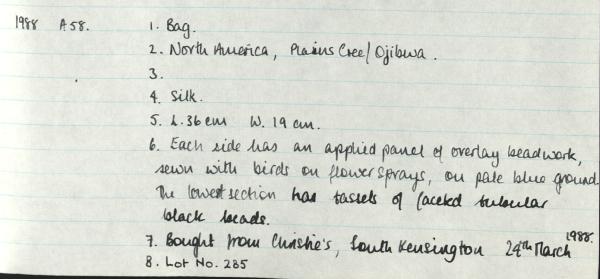 1988 A58. 1. Bag.
2. North America, Plains Cree/Ojibwa.
3.
4. Silk.
5. L.36cm W.19cm.
6. Each side has an applied panel of overlay beadwork,
sewn with birds on flower sprays, on pale blue ground.
The lowest section has tassels of faceted tubular
black beads.
7. Bought from Christie's, South Kensington 24th March 1988.
8. Lot No. 285